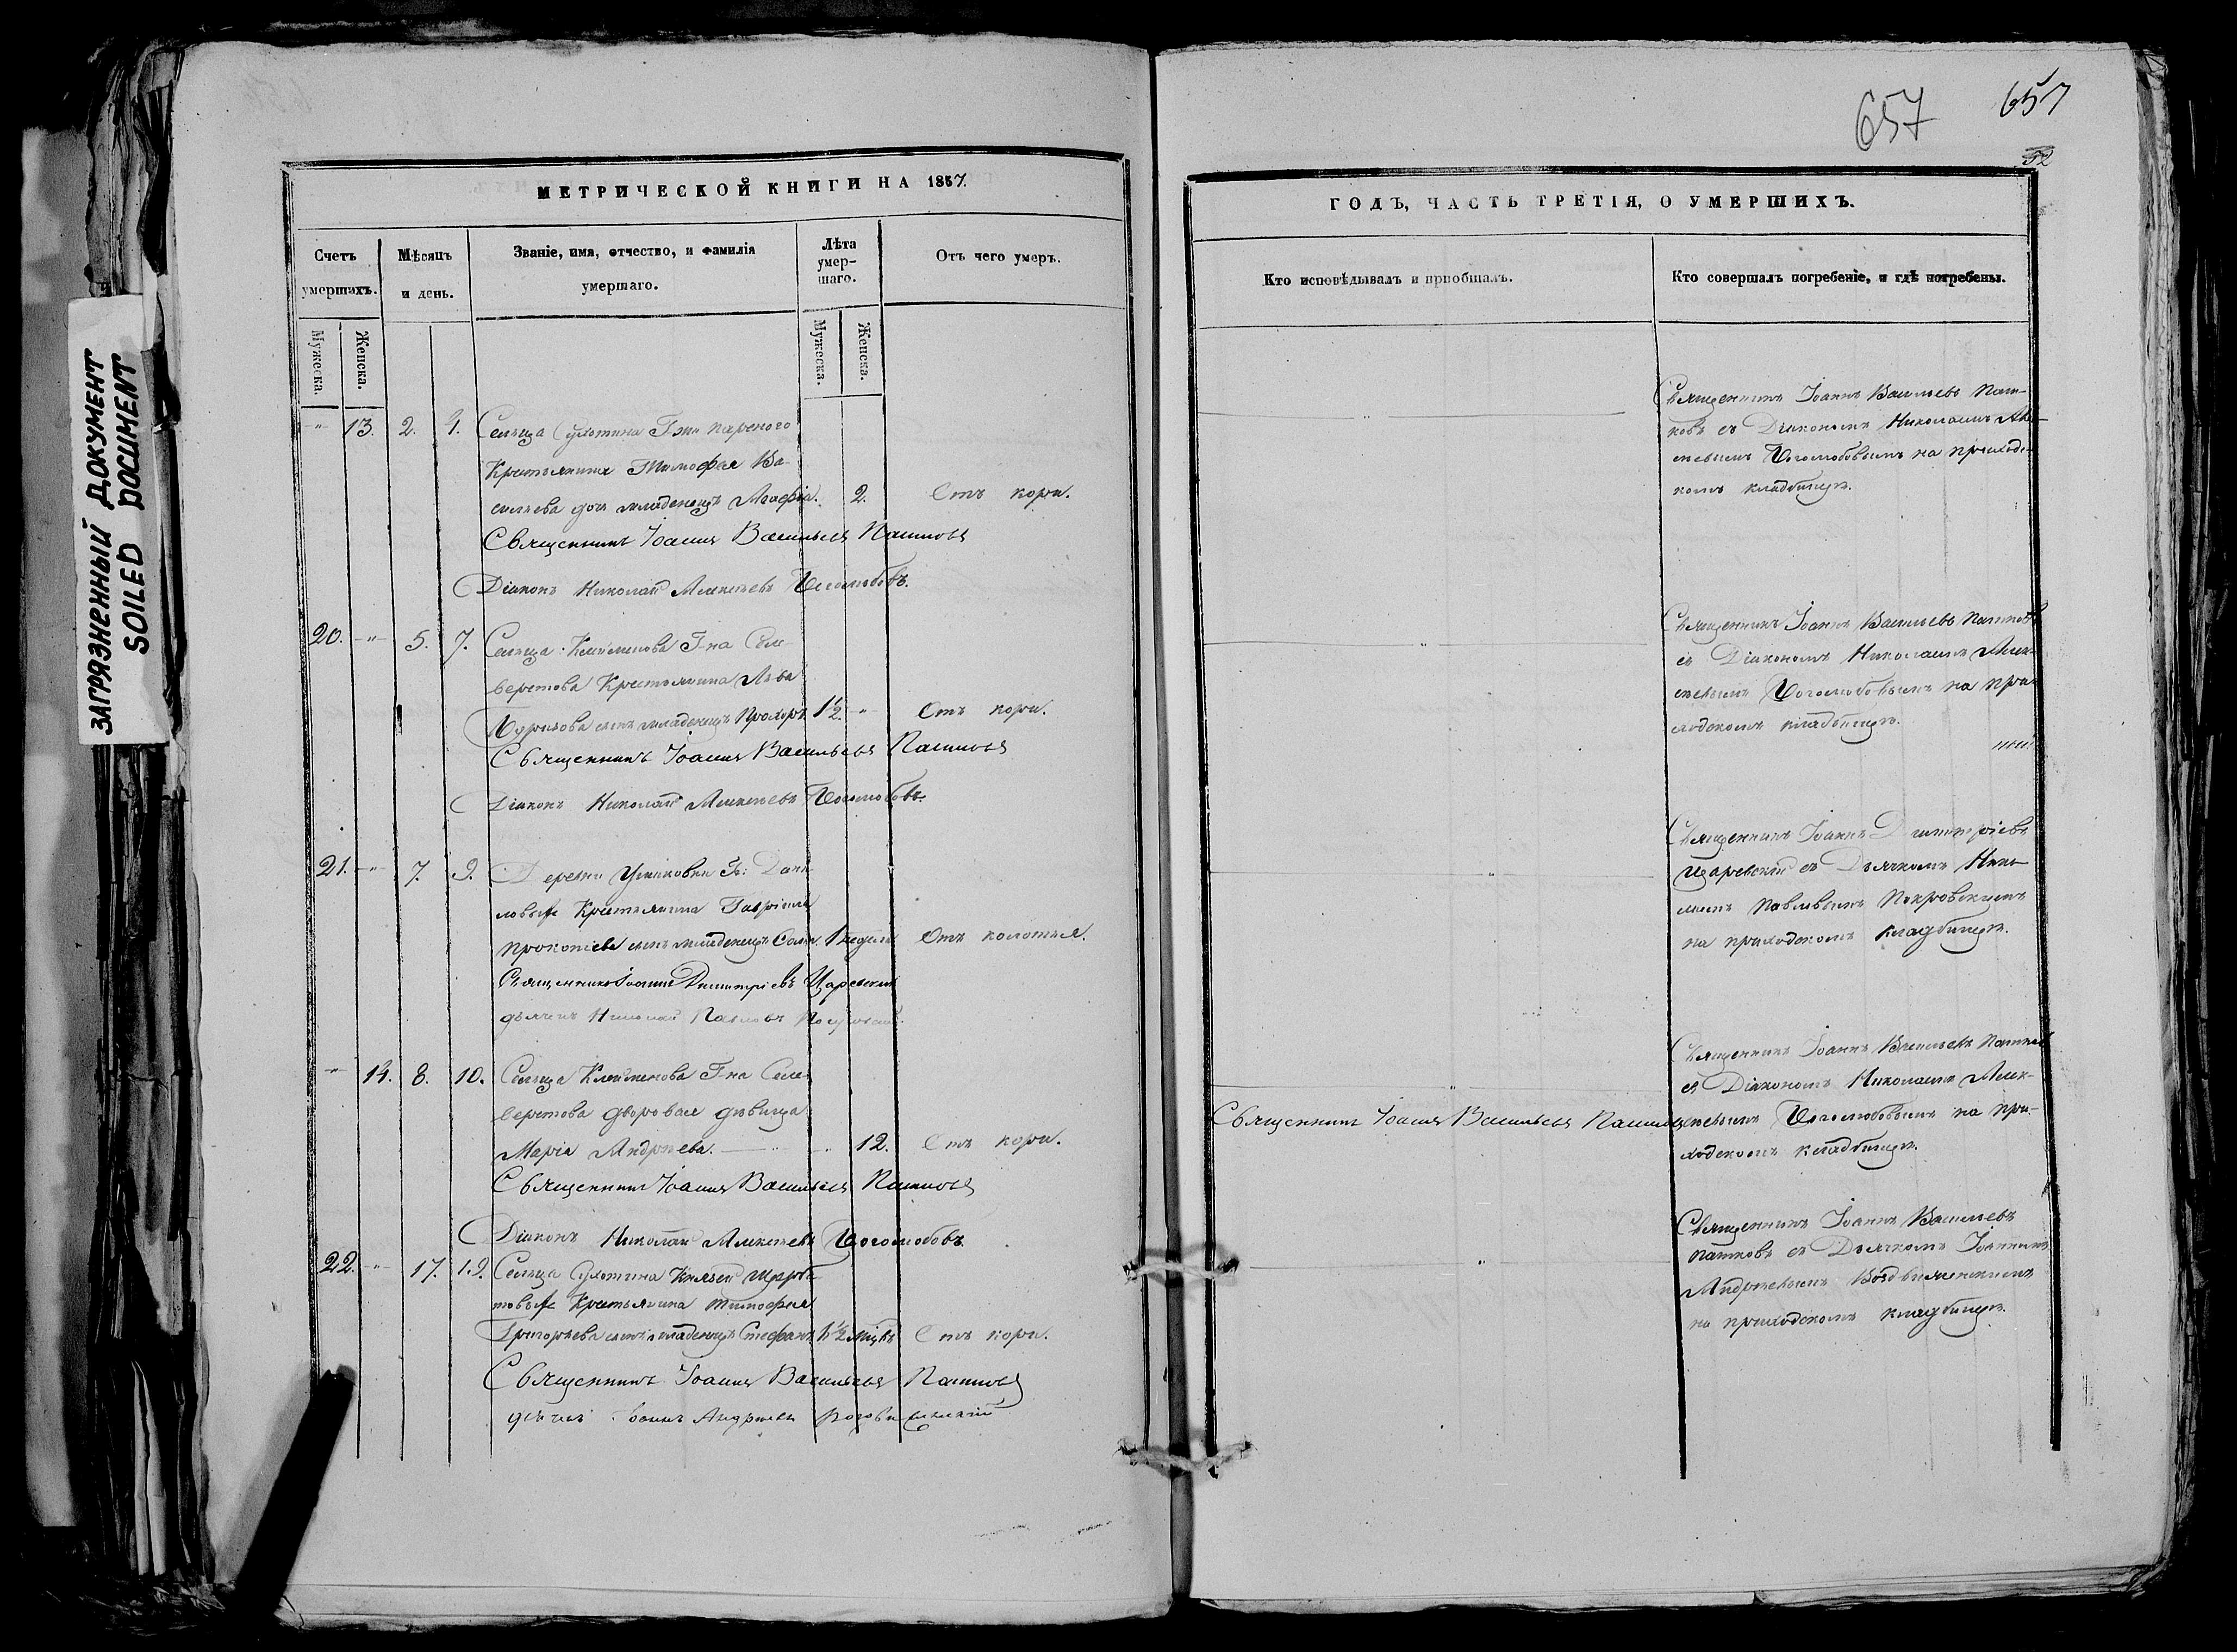 ЗАГРЯЗНЕННЫЙ ДОКУМЕНТ
SOILED DOCUMENT
МЕТРИЧЕСКОЙ КНИГИ НА 1857.
Счетъ умершихъ.
Мѣсяцъ и день.
Званіе, имя, отчество, и фамилія
умершаго.
Лѣта
умер-
шаго.
Отъ чего умеръ.
Мужеска.
Женска.
Мужеска.
Женска.
-"- 13. 2. 4. Сельца Сухотина Г-жи
Крестьянина Тимофея Ва-
сильева дочь младенецъ 2. Отъ кори.
Священникъ Іоаннъ Васильевъ Пашковъ
Діаконъ Николай Алексѣевъ Боголюбовъ.
20. -"- 5. 7. Сельца Клейменова Г-на Сели-
верстова Крестьянина Льва
сынъ младенецъ Прохоръ. 1½. -"- Отъ кори.
Священникъ Іоаннъ Васильевъ Пашковъ
Діаконъ Николай Алексѣевъ Боголюбовъ.
21. -"- 7. 9. Деревни Гг: Дани-
ловыхъ Крестьянина Гавріила
Прокопіева сынъ младенецъ 1 недѣли Отъ колотья.
Священникъ Іоаннъ Димитріевъ Царевскій
дьячекъ Николай Павловъ Покровскій.
-"- 14. 8. 10. Сельца Клейменова Г-на Сели-
верстова дворовая дѣвица
Марія Андреева. 12. Отъ кори.
Священникъ Іоаннъ Васильевъ Пашковъ
Діаконъ Николай Алексѣевъ Боголюбовъ.
22. -"- 17. 19. Сельца Сухотина Князей Щерба-
товыхъ Крестьянина Тимофея
Григорьева сынъ младенецъ Стефанъ 1½ Отъ кори.
Священникъ Іоаннъ Васильевъ Пашковъ
дьячекъ Іоаннъ Андреевъ
657 657
52
ГОДЪ, ЧАСТЬ ТРЕТІЯ, О УМЕРШИХЪ.
Кто исповѣдывалъ и пріобщалъ.
Кто совершалъ погребеніе, и гдѣ погребены.
Священникъ Іоаннъ Васильевъ Паш-
ковъ съ Діакономъ Николаемъ Алек-
сѣевымъ Боголюбовымъ на приходс-
комъ кладбищѣ.
Священникъ Іоаннъ Васильевъ Пашковъ
съ Діакономъ Николаемъ Алек-
сѣевымъ Боголюбовымъ на при-
ходскомъ кладбищѣ.
Священникъ Іоаннъ Димитріевъ
Царевскій съ Дьячкомъ Нико-
лаемъ Павловымъ Покровскимъ
на приходскомъ кладбищѣ.
Священникъ Іоаннъ Васильевъ Пашковъ
съ Діакономъ Николаемъ Алек-
Священникъ Іоаннъ Васильевъ Пашковъ
сѣевымъ Боголюбовымъ на при-
ходскомъ кладбищѣ.
Священникъ Іоаннъ Васильевъ
Пашковъ съ Дьячкомъ Іоанномъ
Андреевымъ Воздвиженскимъ
на приходскомъ кладбищѣ.